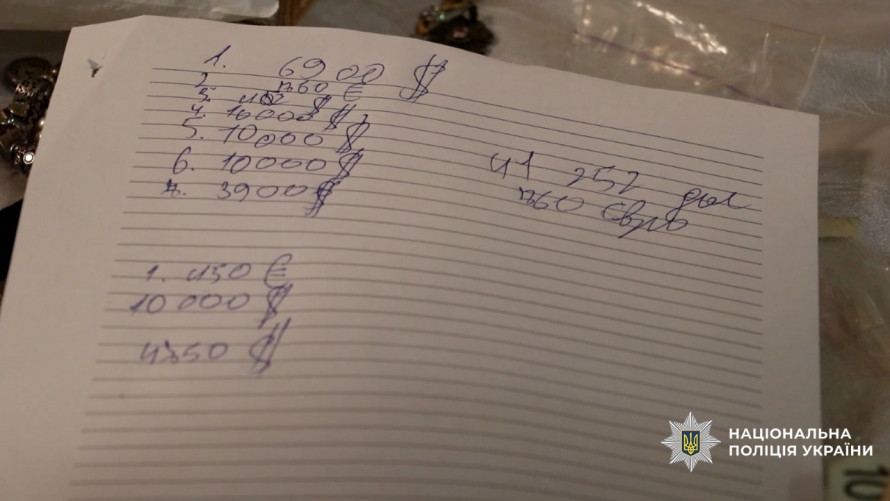 1. 6900 $
2. 760 €
3. 452 $
4. 10000 $
5. 10000 $
6. 10000 $
7. 3900 $
41 252 дол
760 Євро
1. 450 €
10 000 $
$
НАЦІОНАЛЬНА
ПОЛІЦІЯ УКРАЇНИ
10